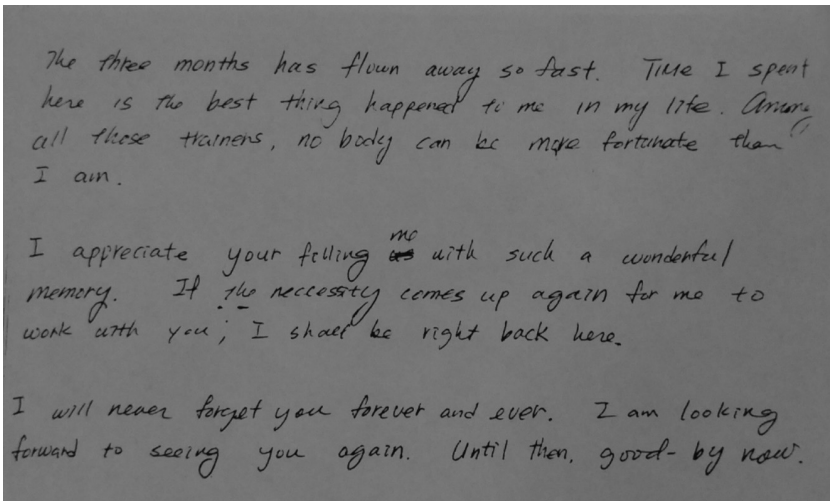 The three months has flown away so fast. Time I spent
here is the best thing happened to me in my life. Among
all those trainers, no body can be more fortunate than
I am.
I appreciate your filling me with such a wonderful
memory. If the neccessity comes up again for me to
work with you, I shall be right back here.
I will never forget you forever and ever. I am looking
forward to seeing you again. Until then, good-by now.